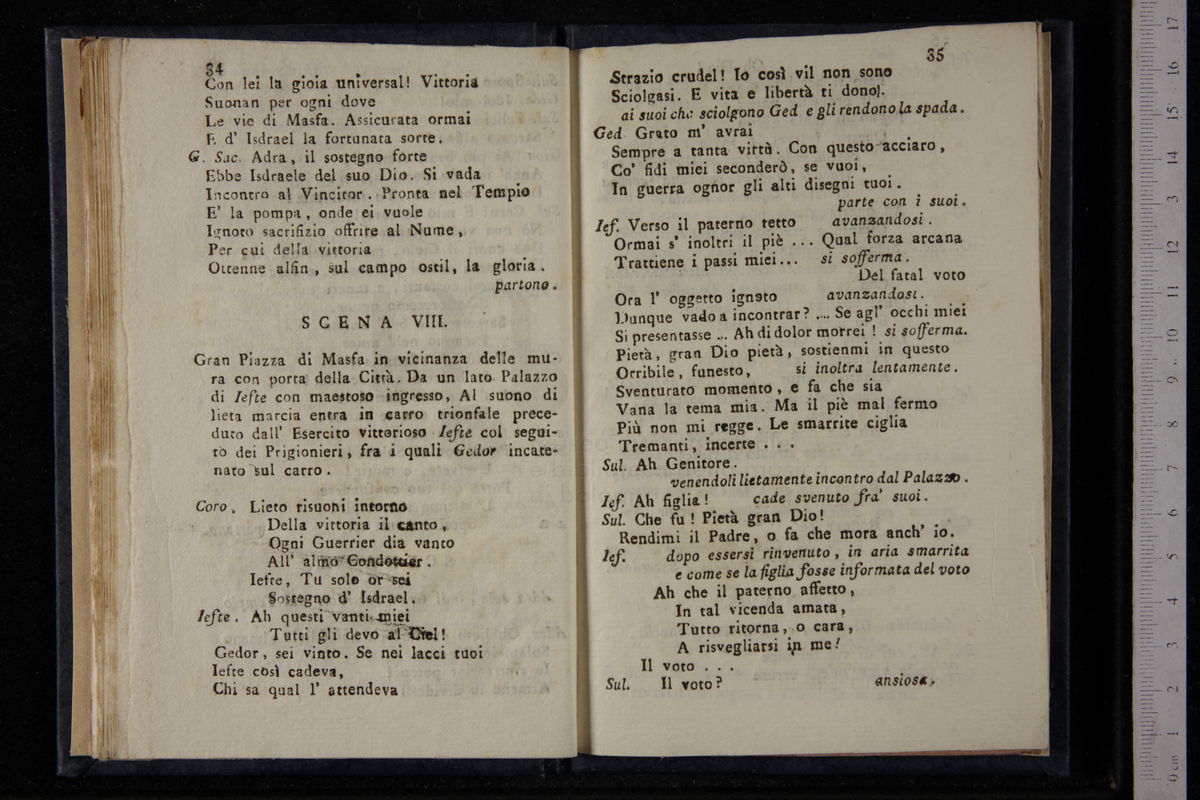 34
Con lei la gioia universal! Vittoria
Suonan per ogni dove
Le vie di Masfa. Assicurata ormai
E d' Isdrael la fortunata sorte.
G. Sac. Adra, il sostegno forte
Ebbe Isdraele del suo Dio. Si vada
Incontro al Vincitor. Pronta nel Tempio
E' la pompa, onde ei vuole
Ignoto sacrifizio offrire al Nume,
Per cui della vittoria
Ottenne alfin, sul campo ostil, la gloria.
partono.
SCENA VIII.
Gran Piazza di Masfa in vicinanza delle mu-
ra con porta della Città. Da un lato Palazzo
di Iefte con maestoso ingresso, Al suono di
lieta marcia entra in carro trionfale prece-
duto dall' Esercito vittorioso Iefte col segui-
to dei Prigionieri, fra i quali Gedor incate-
nato sul carro.
Coro. Lieto risuoni intorno
Della vittoria il canto,
Ogni Guerrier dia vanto
All' almo Condottier.
Iefte, Tu solo or sei
Sostegno d' Isdrael.
Iefte. Ah questi vanti miei
Tutti gli devo al Ciel!
Gedor, sei vinto. Se nei lacci tuoi
Iefte così cadeva,
Chi sa qual l' attendeva
35
Strazio crudel! Io così vil non sono
Sciolgasi. E vita e libertà ti dono].
ai suoi che sciolgono Ged e gli rendono la spada.
Ged Grato m' avrai
Sempre a tanta virtù. Con questo acciaro,
Co' fidi miei seconderò, se vuoi,
In guerra ognor gli alti disegni tuoi.
parte con i suoi.
Ief. Verso il paterno tetto avanzandosi.
Ormai s' inoltri il piè ... Qual forza arcana
Trattiene i passi miei... si sofferma.
Del fatal voto
Ora l' oggetto ignoto avanzandosi.
Dunque vado a incontrar? .... Se agl' occhi miei
Si presentasse ... Ah di dolor morrei! si sofferma.
Pietà, gran Dio pietà, sostienmi in questo
Orribile, funesto, si inoltra lentamente.
Sventurato momento, e fa che sia
Vana la tema mia. Ma il piè mal fermo
Più non mi regge. Le smarrite ciglia
Tremanti, incerte . . .
Sul. Ah Genitore.
venendoli lietamente incontro dal Palazzo.
Ief. Ah figlia! cade svenuto fra' suoi.
Sul. Che fu! Pietà gran Dio!
Rendimi il Padre, o fa che mora anch' io.
Ief. dopo essersi rinvenuto, in aria smarrita
e come se la figlia fosse informata del voto
Ah che il paterno affetto,
In tal vicenda amata,
Tutto ritorna, o cara,
A risvegliarsi in me!
Il voto . . .
Sul. Il voto? ansiosa.